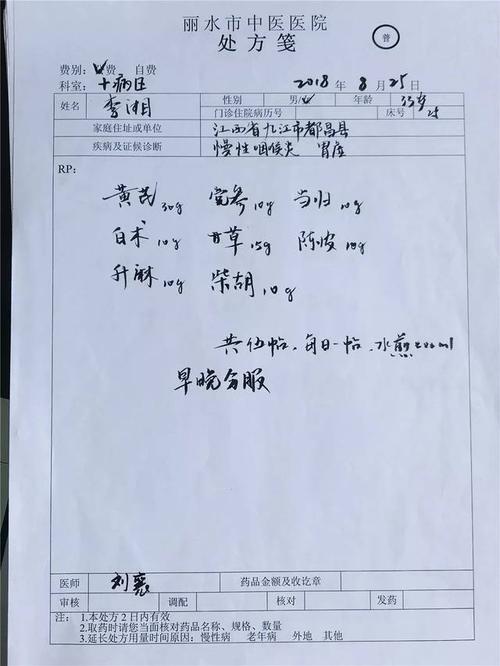 丽水市中医医院
处方笺
普
费别: 公费 自费
科室: 十病区 2018 年 8 月 25 日
姓名 李湘 性别 男/女 年龄 35岁
门诊住院病历号 床号
家庭住址或单位 江西省九江市都昌县
疾病及证候诊断 慢性咽喉炎 胃虚
RP:
黄芪30g 党参10g 当归10g
白术10g 甘草15g 陈皮10g
升麻10g 柴胡10g
共伍帖,每日一帖,水煎200ml
早晚分服
医师 刘 药品金额及收讫章
审核 调配 核对 发药
注: 1.本处方2日内有效
2.取药时请您当面核对药品名称、规格、数量
3.延长处方用量时间原因: 慢性病 老年病 外地 其他